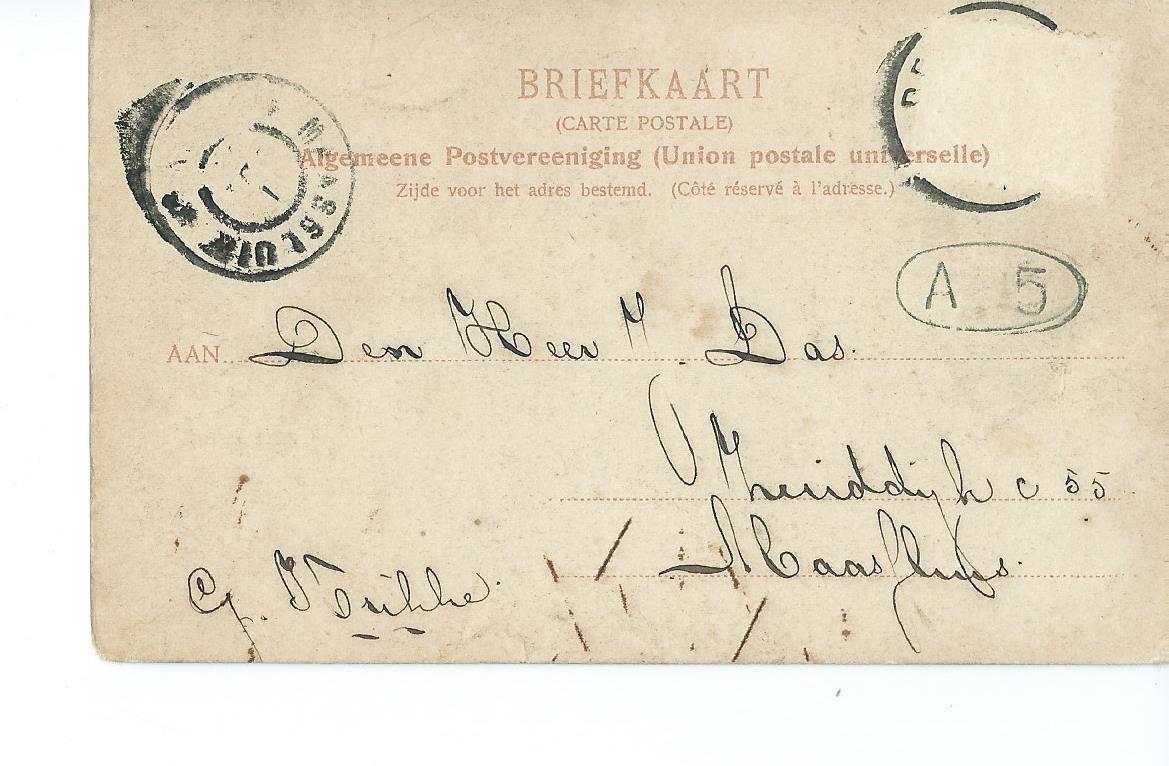 BRIEFKAART
(CARTE POSTALE)
Algemeene Postvereeniging (Union postale universelle)
Zijde voor het adres bestemd. (Côté réservé à l'adresse.)
MAASSLUIS
A 5
AAN Den Heer J. Das.
Zuiddijk c 55
Maassluis.
G.